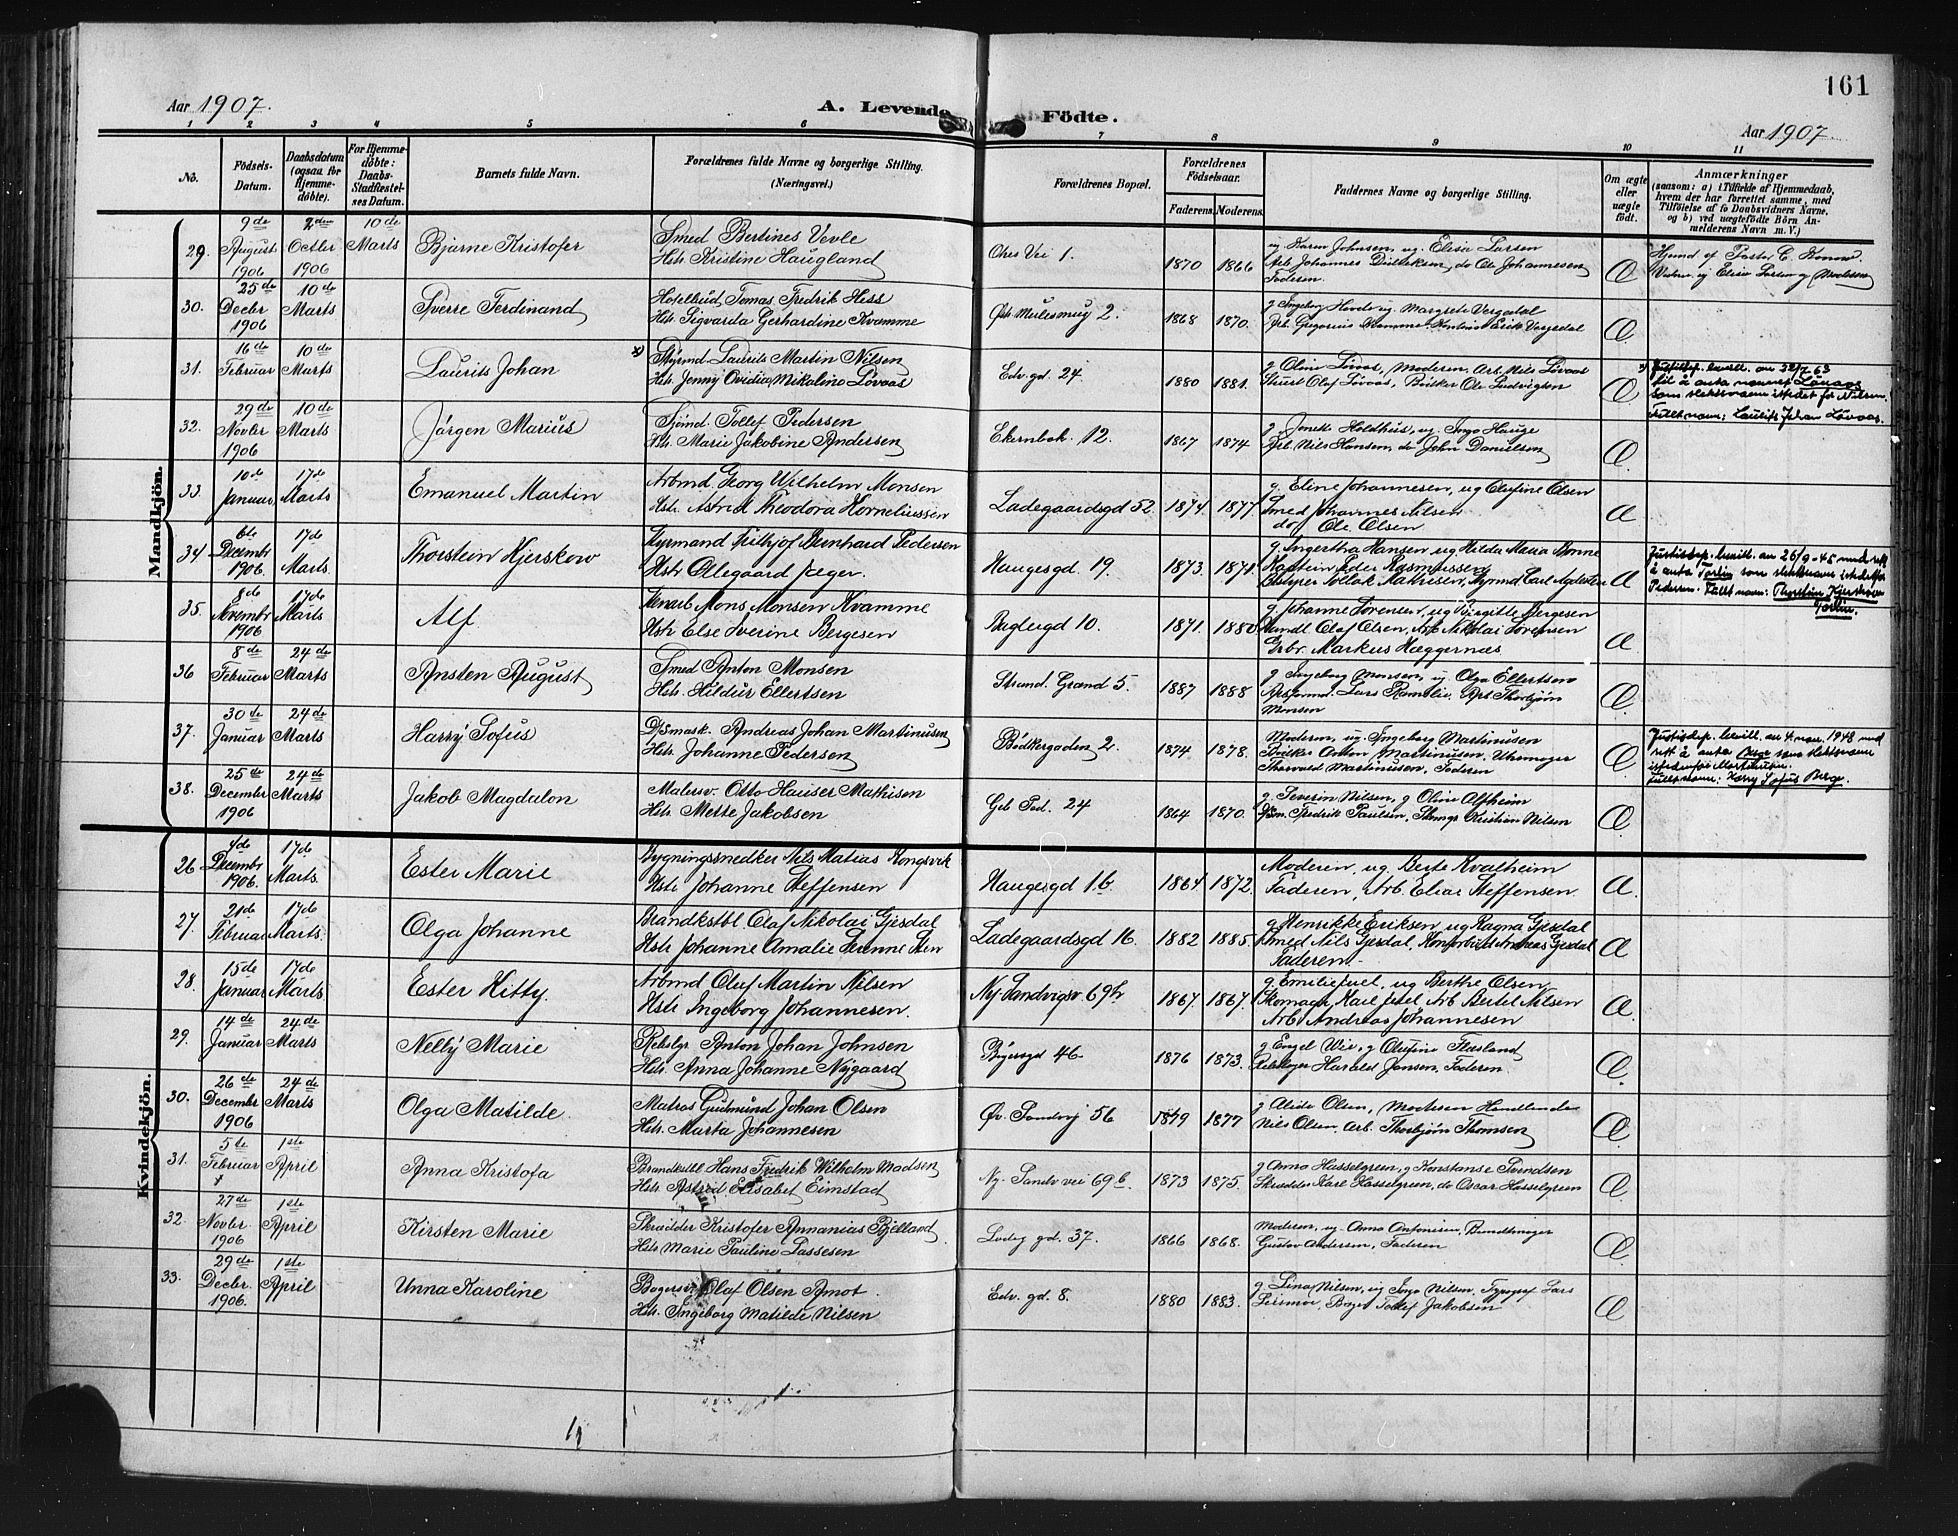 161
Aar 1907.
A. Levende Födte.
Aar 1907.
1 2 3 4 5 6 7 8 9 10 11
No.
Födsels-Datum.
Daabsdatum (ogsaa for Hjemmedöbte).
For Hjemmedöbte: Daabs-Stadfæstelses Datum.
Barnets fulde Navn.
Forældrenes fulde Navne og borgerlige Stilling.
(Næringsvei.)
Forældrenes Bopæl.
Forældrenes Födselsaar.
Faderens. Moderens.
Faddernes Navne og borgerlige Stilling.
Om ægte eller uægte födt.
Anmærkninger
(saasom: a) i Tilfælde af Hjemmedaab, hvem der har forrettet samme, med Tilföielse af to Daabsvidners Navne, og b) ved uægtefödte Börn Anmelderens Navn m. V.)
Mandkjön.
29. 9de August 1906 2den Octbr 1906 10de Marts Bjarne Kristofer
Smed Bertines Vevle
Hstr. Kristine Haugland
Vei 1. 1870 1866
ug Karen Johnsen, ug. Elisa Larsen
Arb. Johannes Didriksen, do Ole Johannesen
Faderen.
Æ
Hjmd af Pastor C.
30. 25de Decbr 1906 10de Marts Sverre Ferdinand
Tomas Fredrik Hess
Hstr. Sigvarda Gerhardine Kvamme
Øvr Mulesmug 2. 1868 1870.
g Ingeborg ug. Margrete Vergedal
Arb. Gregorius Kvamme, Erik Vergedal
Æ
31. 16de Februar 10de Marts Laurits Johan
x) Styrmd Laurits Martin Nilsen
Hstr. Jenny Ovidia Mikaline Lövaas
Edv. gd. 24. 1880 1881.
g Oline Lövaas, Moderen, Arb. Nils Lövaas
Stuert Olaf Lövaas, Bödker Ole Ludvigsen
Æ
x) Justisdep. bevill. av
til å anta navnet Lövaas
som slektsnavn istedet for Nilsen.
Fullt navn: Laurits Johan Lövaas.
32. 29de Novbr 1906 10de Marts Jörgen Marius
Sjömd. Tollef Pedersen
Hstr. Marie Jakobine Andersen
Ekernbak. 12. 1867 1874
g. Holdhus, ug. Inga Hauge
Arb. Nils Hansen, do John Danielsen
Æ
33. 10de Januar 17de Marts Emanuel Martin
Arbmd Georg Wilhelm Monsen
Hstr. Astrid Theodora Korneliussen
Ladegaardsgd 52 1874. 1877
g. Eline Johannesen, ug Olufine Olsen
Smed Johannes Nilsen
do Ole Olsen
Æ
34. 6te Decembr 1906. 17de Marts. Thorstein Hjerskow
Styrmand Fritjof Bernhard Pedersen
Hstr Ollegaard Jæger.
Haugesgd 19. 1873. 1871
g. Ingertha Hansen ug Hilda Maria Bonne
Kaptein Peder Rasmussen
Æ
Justisdep. bevill. av 26/9-45 med rett
å anta Torlin som slektsnavn istedetfor
Pedersen. Fullt navn: Thorstein Hjerskow
Torlin.
35. 8de Novembr 1906 17de Marts Alf.
Mons Monsen Kvamme
Hstr Else Severine Bergesen
Baglergd 10. 1871. 1880
g. Johanne Sorensen, ug Birgitte Bergesen
Handl Olaf Olsen, Arb Nikolai Sorensen
Grbr. Markus Hæggernæs
Æ
36 8de Februar 24de Marts Ansten August
Smed Anton Monsen
Hstr. Hildur Ellertsen
Strand. Grand 5. 1887 1888
g Ingeborg Monsen, ug. Olga Ellertsen
Arbformd. Lars Romslo, Arb. Thorbjörn
Monsen
Æ
37. 30de Januar 24de Marts Harry Sofus
Dpsmask. Andreas Johan Martinusen
Hstr. Johanne Pedersen
Bödkergaden 2. 1874 1878.
Moderen, ug. Ingeborg Martinusen
Bödker Anton Martinusen, Uhrmager
Thorvald Martinusen, Faderen
Æ
Justisdep. bevill. av 4. nov. 1948 med
rett å anta Berge som slektsnavn
istedenfor Martinusen.
Fullt navn: Harry Sofus Berge.
38. 25de December 1906 24de Marts Jakob Magdalon
Malersv. Otto Hauser Mathisen
Hstr. Mette Jakobsen
Geb Pod. 24 1864 1870.
g Severin Nilsen, g Oline Alfheim
Fredrik Paulsen, Kristian Nilsen
Æ
Kvindekjön.
26 4de Decembr 1906. 17de Marts. Ester Marie
Bygningssnedker Nils Matias Kongsvik
Hstr Johanne Steffensen
Haugesgd 1b 1864. 1872.
Moderen, ug. Berte Kvalheim
Faderen, Arb. Elias Steffensen
Æ
27. 21de Februar 17de Marts. Olga Johanne
Brandkstbl. Olaf Nikolai Gjesdal
Hstr Johanne Amalie
Ladegaardsgd 16. 1882 1885.
g Henrikke Eriksen, ug Ragna Gjesdal
Smed Nils Gjesdal, Andreas Gjesdal
Faderen.
Æ
28. 15de Januar 17de Marts Ester Kitty.
Arbmd Oluf Martin Nilsen
Hstr Ingeborg Johannesen.
Ny Sandvigsv. 69h 1867. 1867.
g. Emilie Juel, ug Berthe Olsen
Skomagr Karl Juel Arb Bertel Nilsen
Arb Andreas Johannesen
Æ
29. 14de Januar 24de Marts Nelly Marie
Rebslgr Anton Johan Johnsen
Hstr. Anna Johanne Nygaard
46. 1876 1873.
g Engel Wie, g Olufine Flesland
Harald Jansen, Faderen.
Æ
30. 26de Decembr 1906 24de Marts Olga Matilde.
Matros Gudmund Johan Olsen
Hstr. Marta Johannesen
Øv. Sandvej 56 1879 1877
g Alida Olsen, Moderen Handlende
Nils Olsen, Arb. Thorbjörn Thomsen
Æ
31. 5te Februar 1ste April Anna Kristofa
Brandkstbl. Hans Fredrik Wilhelm Madsen
Hstr. Astrid Elisabet Eimstad
Ny. Sandv vei 69b. 1873 1875.
g Anna Hasselgreen, g Konstanse Svendsen
Skrædder Karl Hasselgreen, do Oscar Hasselgreen
Æ
32. 27de Novbr 1906 1ste April Kirsten Marie
Skrædder Kristofer Annanias Bjelland
Hstr Marie Pauline Lassesen
Ladeg gd. 37. 1866 1868.
Moderen, ug. Anna Antonisen, Bundtmager
Gustav Andersen, Faderen
Æ
33. 29de Decbr. 1906. 1ste April Unna Karoline
Bagersv. Olaf Olsen Amot.
Hstr. Ingeborg Matilde Nilsen
Edv. gd. 8. 1880 1883.
g Lina Nilsen, ug Inga Nilsen, Typograf Lars
Leirmoe, Bager Tollef Jakobsen
Æ